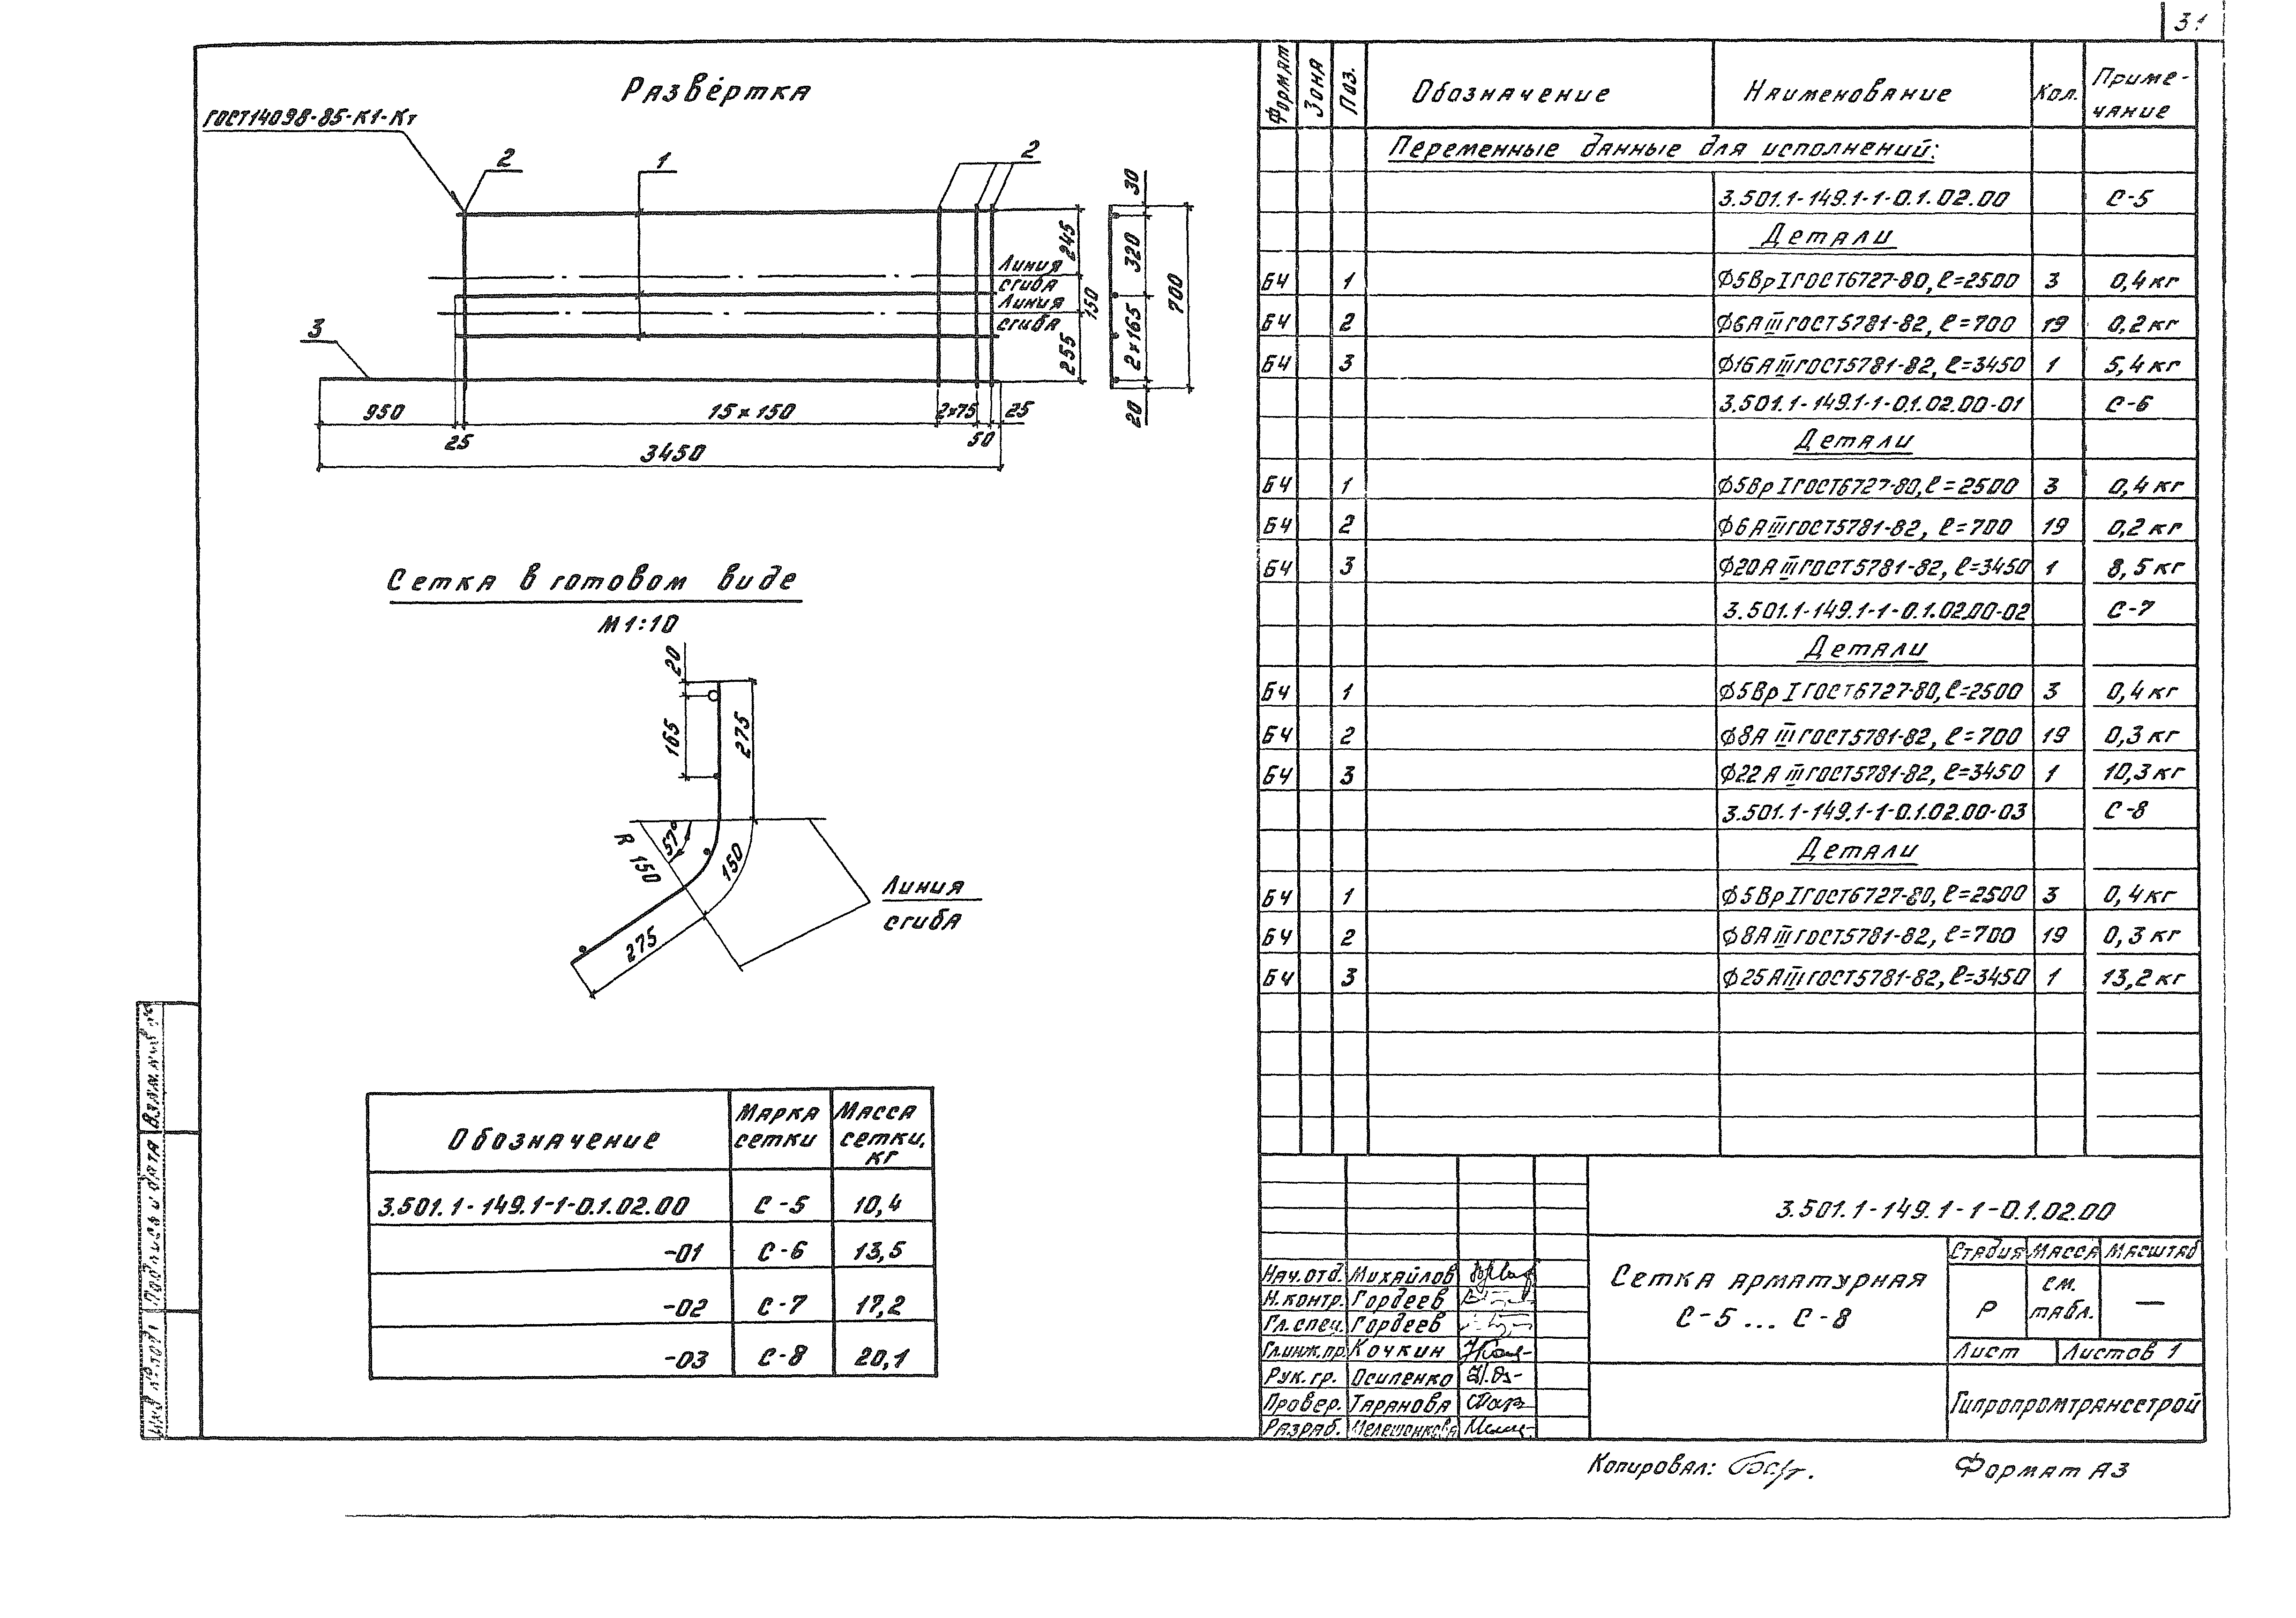 31
Развёртка
ГОСТ14098-85-К1-Кт
2
1
2
3
Линия
сгиба
Линия
сгиба
245
150
255
30
320
2×165
20
700
950
25
15×150
2×75
50
25
3450
Сетка в готовом виде
М1:10
20
165
275
57°
R 150
150
275
Линия
сгиба
Обозначение Марка сетки Масса сетки, кг
3.501.1-149.1-1-0.1.02.00 С-5 10,4
-01 С-6 13,5
-02 С-7 17,2
-03 С-8 20,1
Формат Зона Поз. Обозначение Наименование Кол. Приме-
чание
Переменные данные для исполнений:
3.501.1-149.1-1-0.1.02.00 С-5
Детали
БЧ 1 Ф5ВрI ГОСТ6727-80, ℓ=2500 3 0,4 кг
БЧ 2 Ф6АIII ГОСТ5781-82, ℓ=700 19 0,2 кг
БЧ 3 Ф16АIII ГОСТ5781-82, ℓ=3450 1 5,4 кг
3.501.1-149.1-1-0.1.02.00-01 С-6
Детали
БЧ 1 Ф5ВрI ГОСТ6727-80, ℓ=2500 3 0,4 кг
БЧ 2 Ф6АIII ГОСТ5781-82, ℓ=700 19 0,2 кг
БЧ 3 Ф20АIII ГОСТ5781-82, ℓ=3450 1 8,5 кг
3.501.1-149.1-1-0.1.02.00-02 С-7
Детали
БЧ 1 Ф5ВрI ГОСТ6727-80, ℓ=2500 3 0,4 кг
БЧ 2 Ф8АIII ГОСТ5781-82, ℓ=700 19 0,3 кг
БЧ 3 Ф22АIII ГОСТ5781-82, ℓ=3450 1 10,3 кг
3.501.1-149.1-1-0.1.02.00-03 С-8
Детали
БЧ 1 Ф5ВрI ГОСТ6727-80, ℓ=2500 3 0,4 кг
БЧ 2 Ф8АIII ГОСТ5781-82, ℓ=700 19 0,3 кг
БЧ 3 Ф25АIII ГОСТ5781-82, ℓ=3450 1 13,2 кг
3.501.1-149.1-1-0.1.02.00
Нач.отд. Михайлов
Н.контр. Гордеев
Гл.спец. Гордеев
Гл.инж.пр. Кочкин
Рук.гр. Осипенко
Провер. Таранова
Разраб. Мелешенкова
Сетка арматурная
С-5 ... С-8
Стадия Масса Масштаб
Р см. табл. —
Лист Листов 1
Гипропромтрансстрой
Копировал:
Формат А3
Взам. инв. №
Подпись и дата
Инв № подл